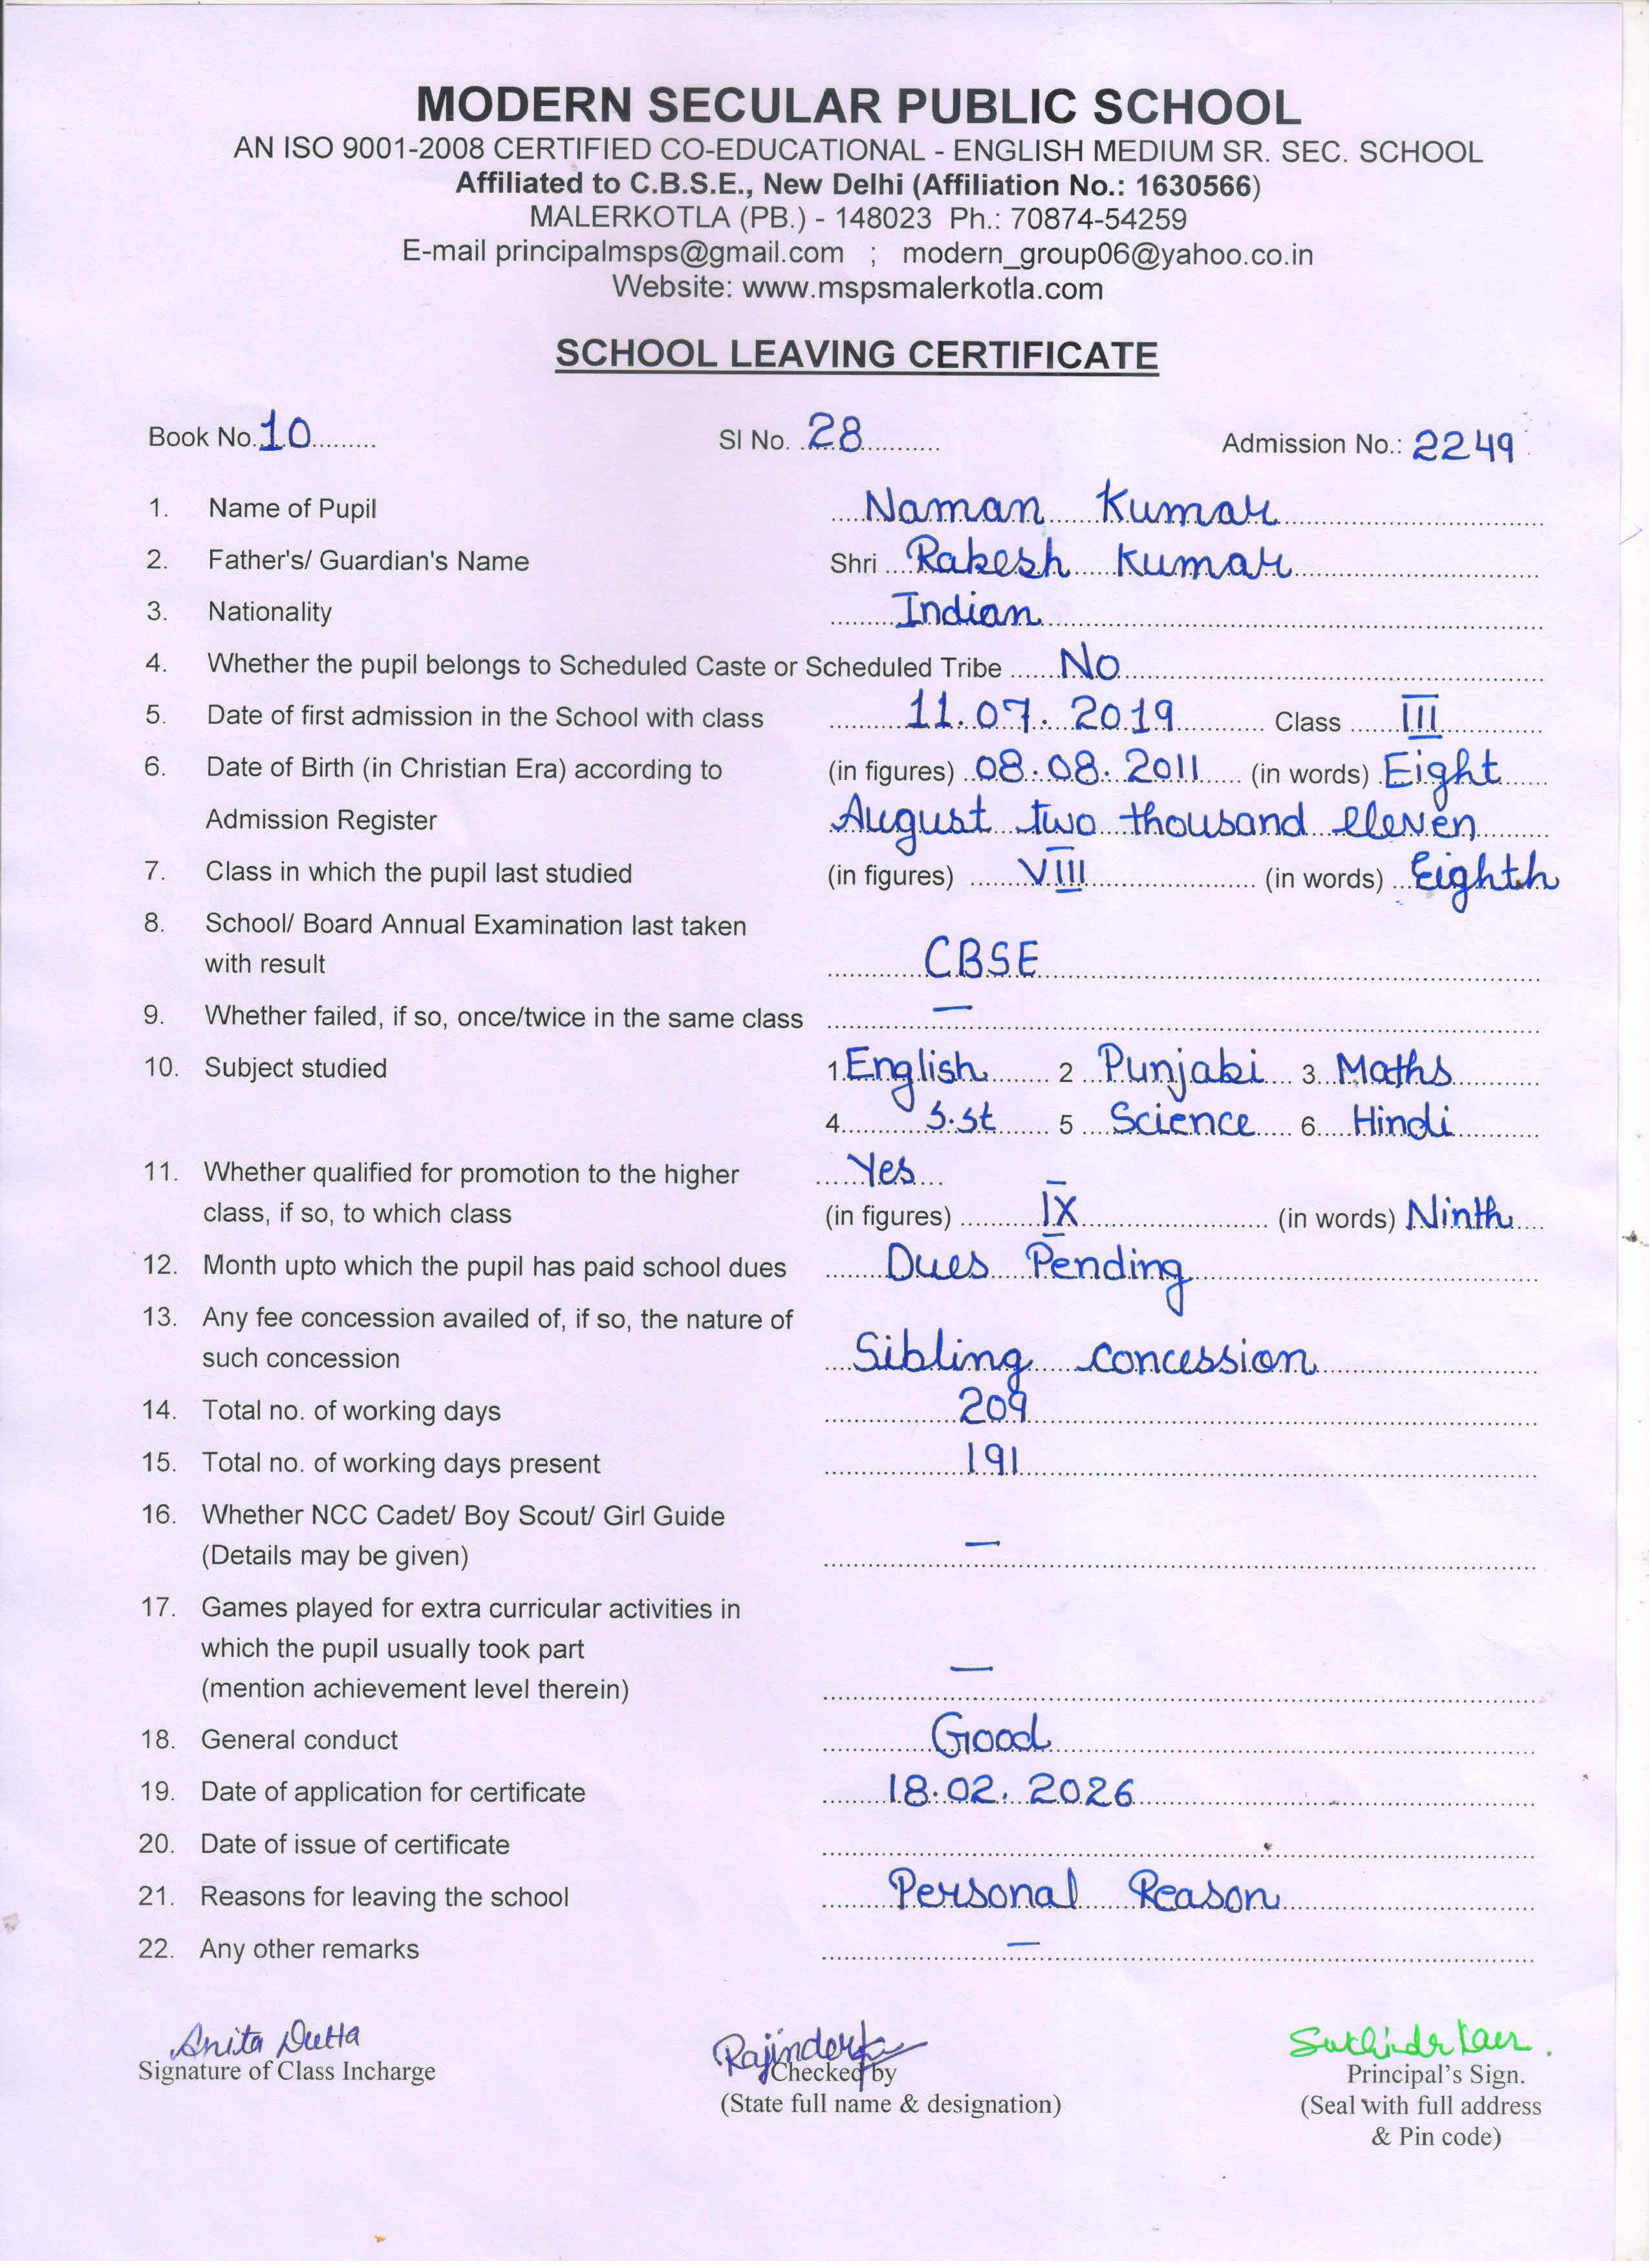 MODERN SECULAR PUBLIC SCHOOL
AN ISO 9001-2008 CERTIFIED CO-EDUCATIONAL - ENGLISH MEDIUM SR. SEC. SCHOOL
Affiliated to C.B.S.E., New Delhi (Affiliation No.: 1630566)
MALERKOTLA (PB.) - 148023 Ph.: 70874-54259
E-mail principalmsps@gmail.com ; modern_group06@yahoo.co.in
Website: www.mspsmalerkotla.com
SCHOOL LEAVING CERTIFICATE
Book No. 10 Sl No. 28 Admission No.: 2249
1. Name of Pupil Naman Kumar
2. Father's/ Guardian's Name Shri Rakesh Kumar
3. Nationality Indian
4. Whether the pupil belongs to Scheduled Caste or Scheduled Tribe No
5. Date of first admission in the School with class 11.07.2019 Class III
6. Date of Birth (in Christian Era) according to (in figures) 08.08.2011 (in words) Eight
Admission Register August two thousand eleven
7. Class in which the pupil last studied (in figures) VIII (in words) Eighth
8. School/ Board Annual Examination last taken
with result CBSE
9. Whether failed, if so, once/twice in the same class —
10. Subject studied 1 English 2 Punjabi 3. Maths
4. S.st 5 Science 6. Hindi
11. Whether qualified for promotion to the higher Yes
class, if so, to which class (in figures) IX (in words) Ninth
12. Month upto which the pupil has paid school dues Dues Pending
13. Any fee concession availed of, if so, the nature of
such concession Sibling concession
14. Total no. of working days 209
15. Total no. of working days present 191
16. Whether NCC Cadet/ Boy Scout/ Girl Guide
(Details may be given) —
17. Games played for extra curricular activities in
which the pupil usually took part
(mention achievement level therein) —
18. General conduct Good
19. Date of application for certificate 18.02.2026
20. Date of issue of certificate
21. Reasons for leaving the school Personal Reason
22. Any other remarks —
Anita Dutta
Signature of Class Incharge Checked by Principal's Sign.
(State full name & designation) (Seal with full address
& Pin code)